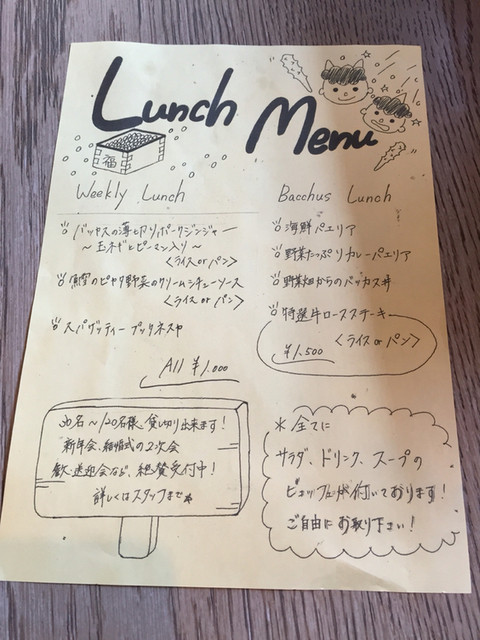 Lunch Menu
福
Weekly Lunch
バッカスの薄切りポークジンジャー
～玉ネギとピーマン入り～
<ライス or パン>
魚介のピヤタ野菜のクリームシチューソース
<ライス or パン>
スパゲッティー プッタネスカ
All ¥1.000
Bacchus Lunch
海鮮パエリア
野菜たっぷりカレーパエリア
野菜畑からのバッカス丼
特選牛ロースステーキ
<ライス or パン>
¥1.500
30名～120名様、貸し切り出来ます!
新年会、結婚式の2次会
歓、送迎会など、絶賛受付中!
詳しくはスタッフまで
＊全てに
サラダ、ドリンク、スープの
ビュッフェが付いております!
ご自由にお取り下さい!